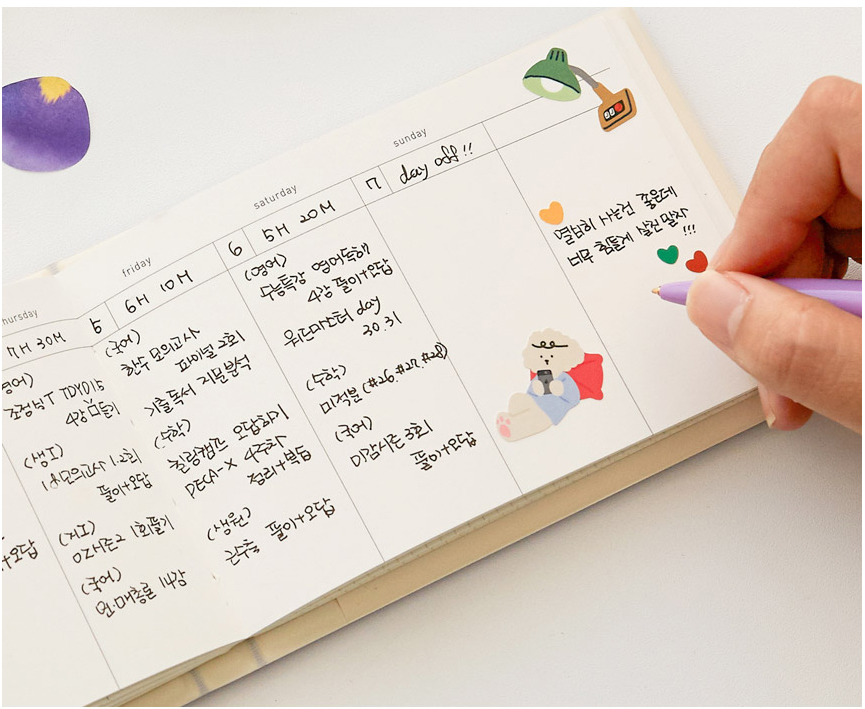 thursday
7H 30M
영어)
조정식T TDYD15
4강 미출기
(생I)
1사모의고사 1·2회
풀이+오답
(지I)
OZ시즌2 1회풀기
(국어)
언·매총론 14강
+오답
friday
5
6H 10M
(국어)
한수 모의고사
파이널 2회
기출독서 지문분석
(수학)
힐링캠프 오답하기
DECA-X 4주차
정리+복습
(생원)
근수축 풀이+오답
saturday
6
5H 20M
(영어)
수능특강 영어독해
4강 풀이+오답
워드마스터 day
30.31
(수학)
미적분 (#26.#27.#28)
(국어)
이감시즌 3회
풀이+오답
sunday
7
day off !!
열심히 사는건 좋은데
너무 힘들게 살진 말자
!!!